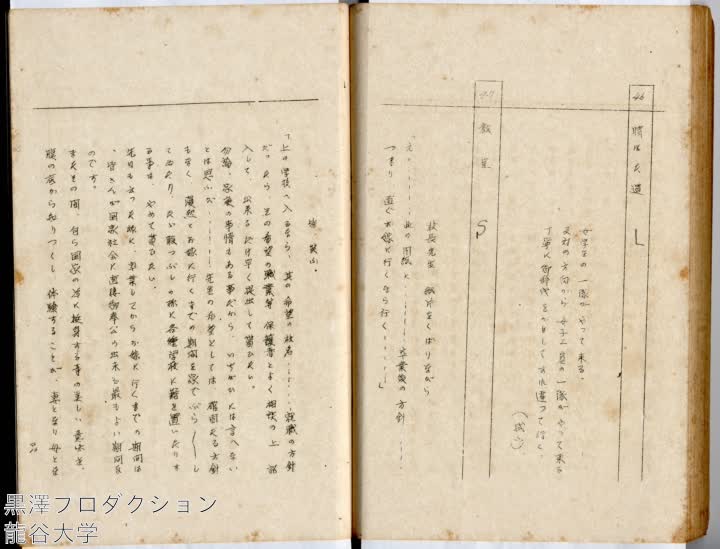 46
L
女学生の一隊がやって来る。
反対の方向から女子工員の一隊がやって来る
丁寧に御辞儀をかはしてすれ違って行く。
47
教室
S
校長先生 紙片をくばり乍ら
「え………此の用紙に………卒業後の方針……
つまり 直ぐお嫁に行くなら行く………」
「上の学校へ入るなら、其の希望の校名………就職の方針
だったら 其の希望の職業等 保護者とよく相談の上 記
入して 出来るだけ早く提出して貰ひたい。
勿論、家庭の事情もある事だから、いちがいには言へない
とは思ふが………先生の希望としては 確固たる方針
もなく 漠然とお嫁に行くまでの期間を家でぶら〱し
て
る事は、やめて貰ひたい。
先日も云った様に、卒業してからお嫁に行くまでの期間は
、皆さんが国家社会に直接御奉公の出来る最もよい期間な
のです。
またその間、自ら国家の為に挺身する事の美しい意味を、
腹の底から知りつくし 体験することが、妻となり母とな
黒澤プロダクション
龍谷大学